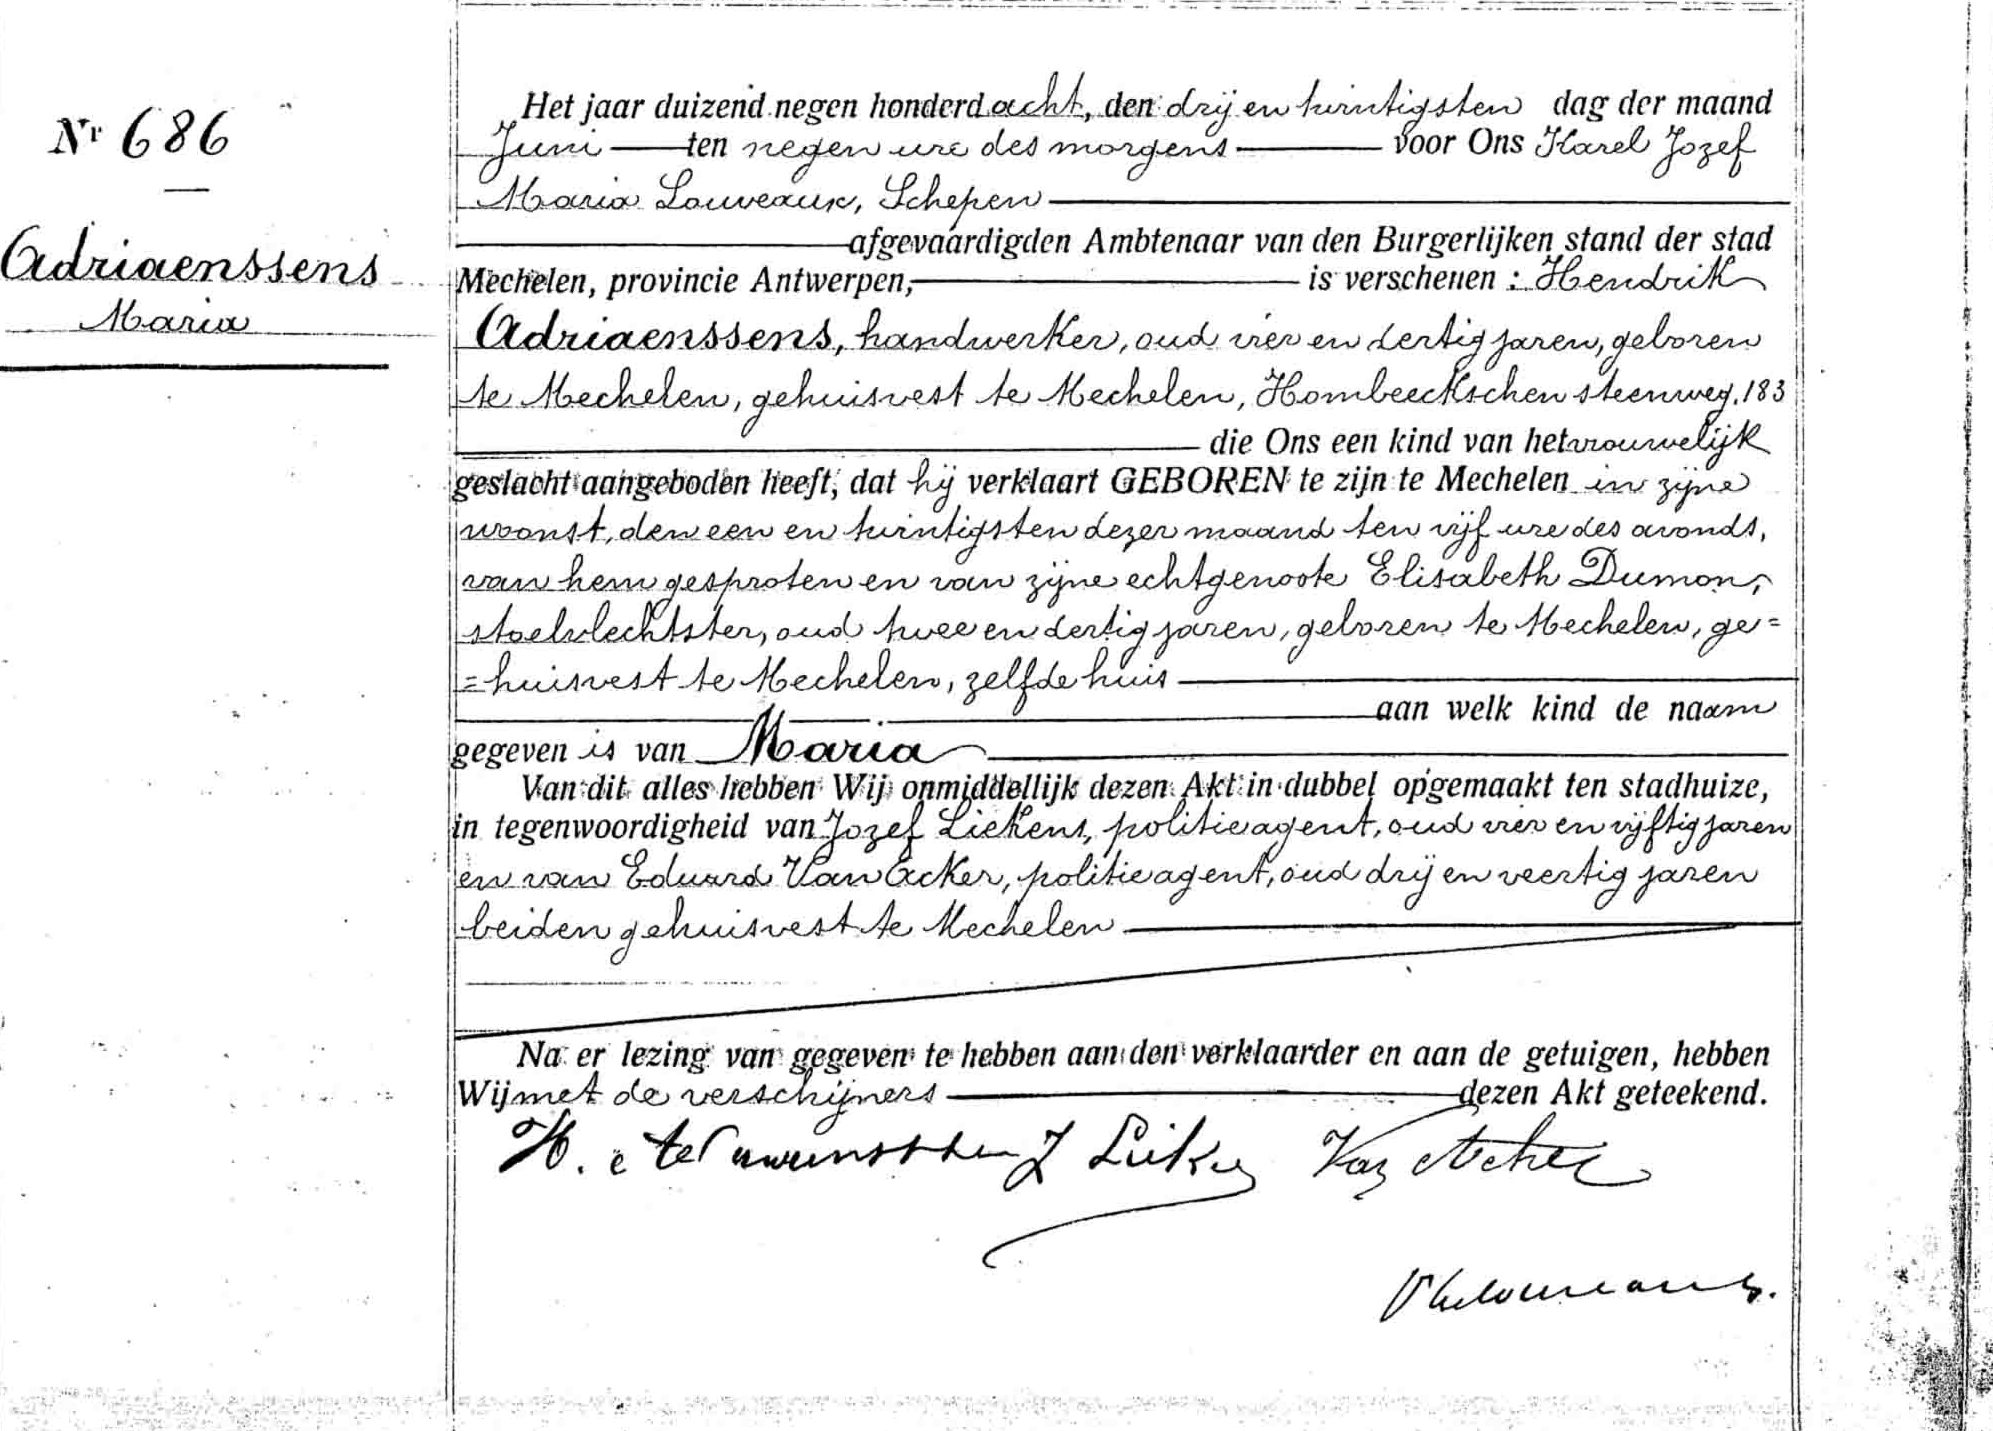 Nr 686
Adriaenssens
Maria
Het jaar duizend negen honderd acht, den drij en twintigsten dag der maand
Juni ten negen ure des morgens voor Ons Karel Jozef
Maria Louveaux, Schepen
afgevaardigden Ambtenaar van den Burgerlijken stand der stad
Mechelen, provincie Antwerpen, is verschenen : Hendrik
Adriaenssens, handwerker, oud vier en dertig jaren, geboren
te Mechelen, gehuisvest te Mechelen, Hombeeckschen steenweg, 183
die Ons een kind van het vrouwelijk
geslacht aangeboden heeft, dat hij verklaart GEBOREN te zijn te Mechelen in zijne
woonst, den een en twintigsten dezer maand ten vijf ure des avonds,
van hem gesproten en van zijne echtgenoote Elisabeth Dumon,
stoelvlechtster, oud twee en dertig jaren, geboren te Mechelen, ge=
=huisvest te Mechelen, zelfde huis
aan welk kind de naam
gegeven is van Maria
Van dit alles hebben Wij onmiddellijk dezen Akt in dubbel opgemaakt ten stadhuize,
in tegenwoordigheid van Jozef Liekens, politieagent, oud vier en vijftig jaren
en van Eduard Van Acker, politieagent, oud drij en veertig jaren
beiden gehuisvest te Mechelen
Na er lezing van gegeven te hebben aan den verklaarder en aan de getuigen, hebben
Wij met de verschijners dezen Akt geteekend.